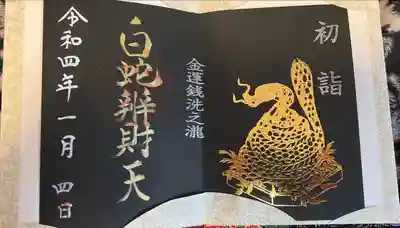 初詣
金運銭洗之瀧
白蛇辨財天
令和四年一月四日